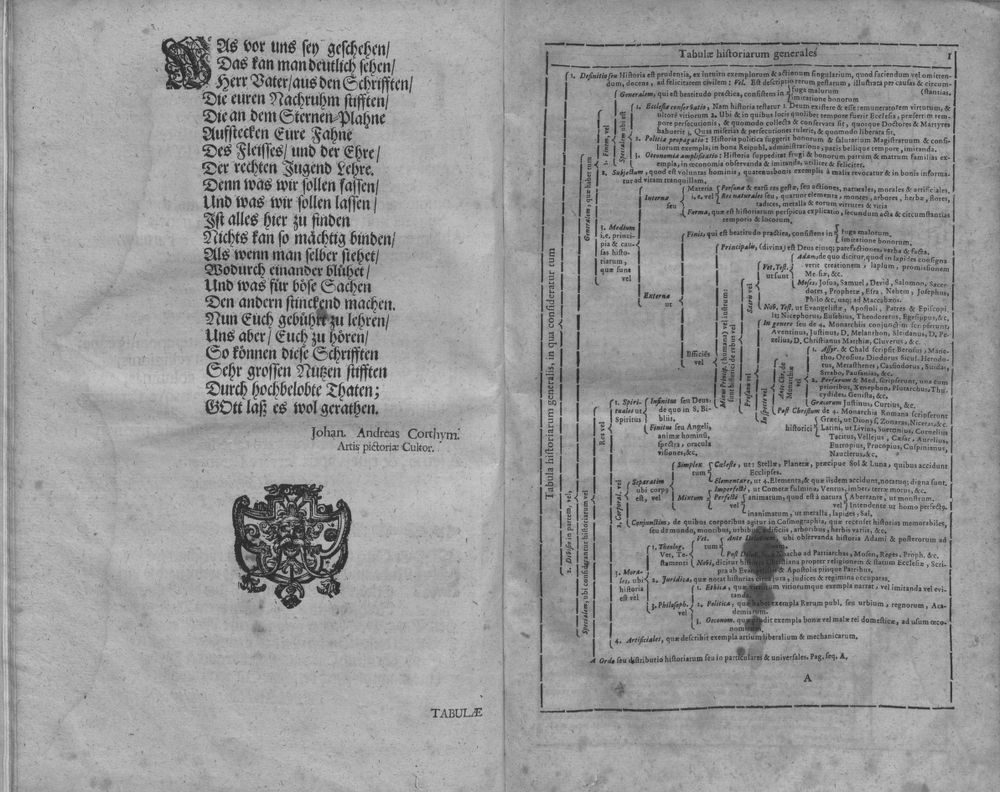 WAs vor uns sey geschehen/
Das kan man deutlich sehen/
Herr Vater/ aus den Schrifften/
Die euren Nachruhm stifften/
Die an dem Sternen-Plahne
Aufstecken Eure Fahne
Des Fleisses/ und der Ehre/
Der rechten Jugend Lehre.
Denn was wir sollen fassen/
Und was wir sollen lassen/
Ist alles hier zu finden
Nichts kan so mächtig binden/
Als wenn man selber siehet/
Wodurch einander blühet/
Und was für böse Sachen
Den andern stinckend machen.
Nun Euch gebührt zu lehren/
Uns aber/ Euch zu hören/
So können diese Schrifften
Sehr grossen Nutzen stifften
Durch hochbelobte Thaten;
GOtt laß es wol gerathen.
Johan. Andreas Corthym.
Artis pictoriæ Cultor.
TABULÆ
Tabulæ historiarum generales
1
Tabula historiarum generalis, in qua consideratur cum
1. Definitio seu Historia est prudentia, ex intuitu exemplorum & actionum singularium, quod faciendum vel omitten-
dum, docens, ad felicitatem civilem: Vel. Est descriptio rerum gestarum, illustrata per causas & circum-
stantias.
2. Divisio in partem, vel,
Generalem, quæ habet cum
1. Finem, vel
Generalem, qui est beatitudo practica, consistens in
fuga malorum
imitatione bonorum
Specialem ubi est
1. Ecclesiæ conservatio, Nam historia testatur 1. Deum existere & esse remuneratorem virtutum, &
ultorē vitiorum 2. Ubi & in quibus locis quolibet tempore fuerit Ecclesia, præsertim tem-
pore persecutionis, & quomodo collecta & conservata sit, quosque Doctores & Martyres
habuerit 3. Quas miserias & persecutiones tulerit, & quomodo liberata sit,
2. Politiæ propagatio: Historia politica suggerit bonorum & salutarium Magistratuum & consi-
liorum exempla, in bona Reipubl. administratione, pacis bellique tempore, imitanda.
3. Oeconomiæ amplificatio: Historia suppeditat frugi & honorum patrum & matrum familias ex-
empla, in œconomia observanda & imitanda, utiliter & feliciter.
2. Subjectum, quod est voluntas hominis, quatenus bonis exemplis à malis revocatur & in bonis informa-
tur ad vitam tranquillam.
3. Medium
i.e. princi-
pia & cau-
sas histo-
riarum,
quæ sunt
vel
Interna
seu
Materia
i, e. vel
Personæ & earū res gestæ, seu actiones, naturales, morales & artificiales.
Res naturales seu, quatuor elementa, montes, arbores, herbæ, flores,
radices, metalla & eorum virtutes & vitia
Forma, quæ est historiarum perspicua explicatio, secundum acta & circumstantias
temporis & locorum.
Externa
ut
Finis, qui est beatitudo practica, consistens in
fuga malorum,
imitatione bonorum,
Efficiēs
vel
Principalis, (divina) est Deus eiusq; patefactiones, verba & facta.
Minus Princip. (humana) vel instrum:
sunt historici de rebus vel
Sacris vel
Vet. Test.
ut sunt
Adam, de quo dicitur, quod in lapides consigna
verit creationem, lapsum, promissionem
Messiæ, &c.
Moses, Josua, Samuel, David, Salomon, Sacer-
dotes, Prophetæ, Esra, Nehem, Josephus,
Philo &c. usq; ad Maccabæos.
Nov. Test. ut Evangelistæ, Apostoli, Patres & Episcopi,
It: Nicephorus, Eusebius, Theodoretus, Egesippus, &c.
Profanis vel
In genere seu de 4. Monarchiis conjunctim scripserunt,
Aventinus, Justinus, D, Melanthon, Sleidanus, D. Pe-
zelius, D. Christianus Matthiæ, Cluverus, &c.
In specie vel
Ante Chr. de
Monarchia
vel
1. Assyr. & Chald scripsit Berosus, Mane-
tho, Orosius, Diodorus Sicul. Herodo-
tus, Metasthenes, Cassiodorus, Suidas,
Strabo, Pausanias, &c.
2. Persarum & Med. scripserunt, una cum
prioribus, Xenophon, Plutarchus, Thu-
cydides, Genista, &c.
Græcorum Justinus, Curtius, &c.
Post Christum de 4. Monarchia Romana scripserunt
historici
Græci, ut Dionys, Zonaras, Nicetas, &c.
Latini, ut Livius, Suetonius, Cornelius
Tacitus, Vellejus, Cæsar, Aurelius,
Eutropius, Procopius, Cuspinianus,
Nauclerus, &c.
Specialem, ubi considerantur historiarum vel
Res vel
1. Spiri-
tuales ut
Spiritus
Infinitus seu Deus,
de quo in S. Bi-
bliis,
Finitus seu Angeli,
animæ hominū,
spectra, oracula
visiones, &c.
2. Corporal. vel
Separatim
ubi corp9
est, vel
Simplex
tum
Cœleste, ut: Stellæ, Planetæ, præcipue Sol & Luna, quibus accidunt
Ecclipses.
Elementare, ut 4. Elementa, & quæ iisdem accidunt, notatuq; digna sunt.
Mixtum
Imperfectè, ut Cometæ fulmina, Ventus, imber, terræ motus, &c.
Perfectè
vel
animatum, quod est à natura
vel
Aberrante, ut monstrum.
Intendente ut homo perfectq.
inanimatum, ut metalla, lapides, Sal,
Conjunctim, de quibus corporibus agitur in Cosmographia, quæ recenset historias memorabiles,
seu de mundo, montibus, urbibus, ædificiis, arboribus, herbis variis, &c.
3. Mora-
les, ubi
historia
est vel
1. Theolog.
Vet, Te-
stamenti
Vet.
tum
Ante Diluvium, ubi observanda historia Adami & posterorum ad
Post Diluv. à Noacho ad Patriarchas, Mosen, Reges, Proph. &c.
Novi, dicitur historia Christiana propter religionem & statum Ecclesiæ, Scri-
pta ab Evangelistis & Apostolis piisque Patribus,
2. Juridica, quæ notat historias circa jura, judices & regimina occupatas.
3. Philosoph.
vel
1. Ethica, quæ virtutum vitiorumque exempla narrat, vel imitanda vel evi-
tanda
2. Politica, quæ habet exempla Rerum publ, seu urbium, regnorum, Aca-
demiarum,
3. Oeconom. quæ tradit exempla bonæ vel malæ rei domesticæ, ad usum œco-
nomicum,
4. Artificiales, quæ describit exempla artium liberalium & mechanicarum,
A Ordo seu distributio historiarum seu in particulares & universales. Pag. seq. A,
A